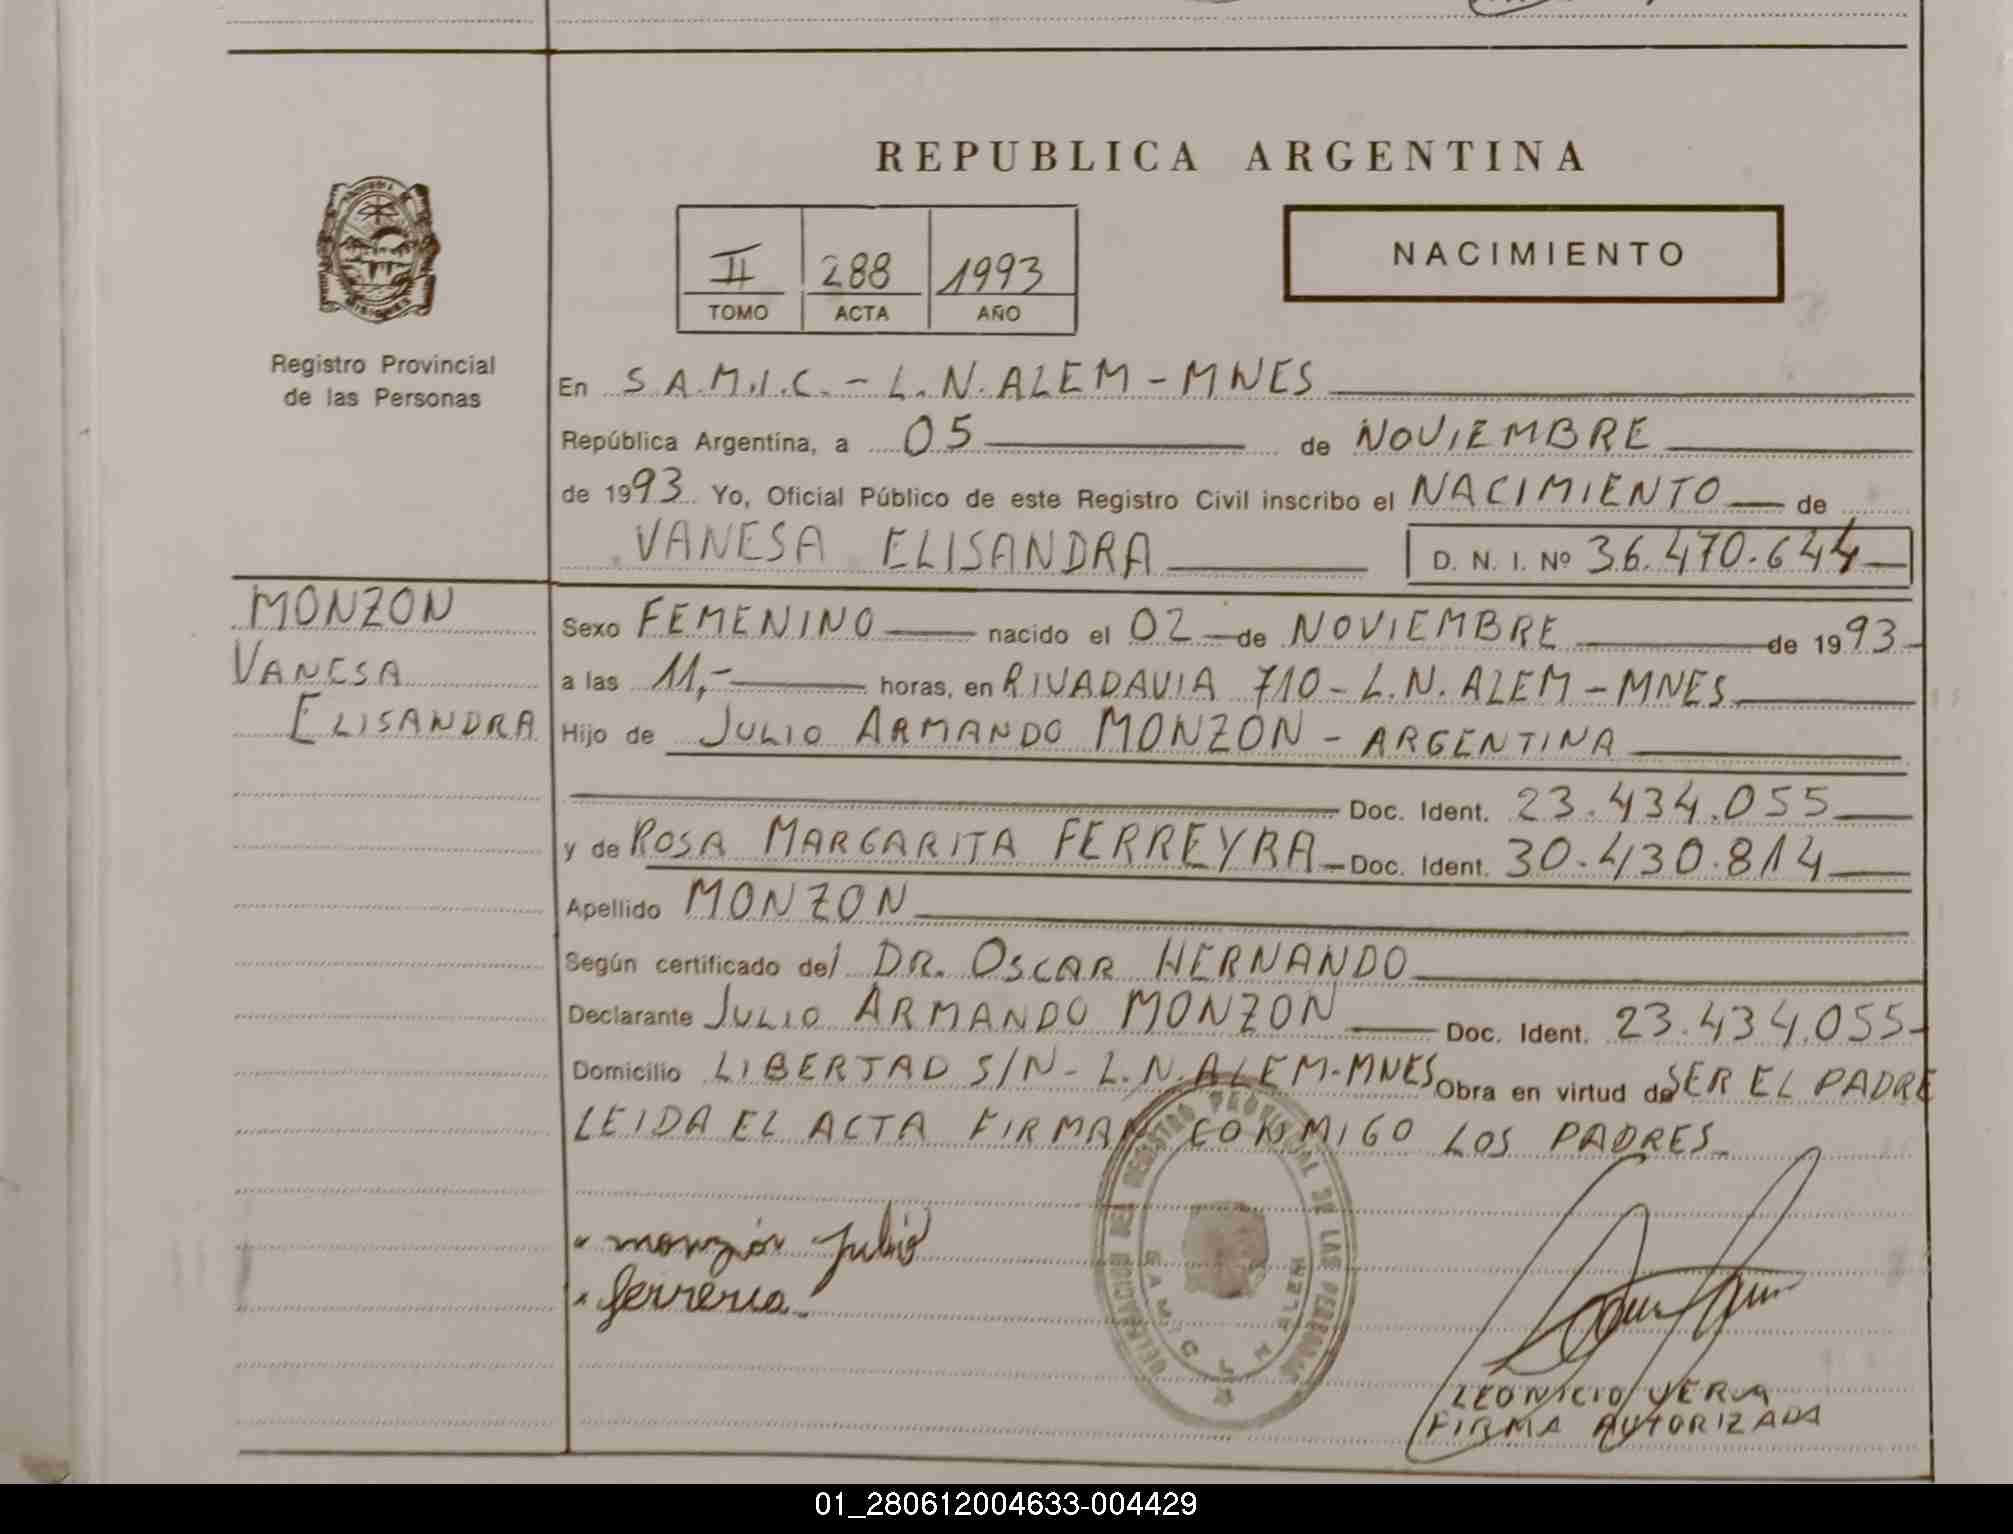 REPUBLICA ARGENTINA
II 288 1993
TOMO ACTA AÑO
NACIMIENTO
Registro Provincial
de las Personas
En S.A.M.I.C. - L.N. ALEM - MNES
República Argentina, a 05 de NOVIEMBRE
de 1993 Yo, Oficial Público de este Registro Civil inscribo el NACIMIENTO de
VANESA ELISANDRA D. N. I. Nº 36.470.644
MONZON
VANESA
ELISANDRA
Sexo FEMENINO nacido el 02 de NOVIEMBRE de 1993
a las 11,- horas, en RIVADAVIA 710 - L.N. ALEM - MNES
Hijo de JULIO ARMANDO MONZON - ARGENTINA
Doc. Ident. 23.434.055
y de ROSA MARGARITA FERREYRA Doc. Ident. 30.430.814
Apellido MONZON
Según certificado del DR. OSCAR HERNANDO
Declarante JULIO ARMANDO MONZON Doc. Ident. 23.434.055
Domicilio LIBERTAD S/N - L.N. ALEM - MNES Obra en virtud de SER EL PADRE
LEIDA EL ACTA FIRMAN CONMIGO LOS PADRES
monzón julio
ferreria
DELEGACION DEL REGISTRO PROVINCIAL DE LAS PERSONAS
S.A.M.I.C. L. N. ALEM
FIRMA AUTORIZADA
01_280612004633-004429